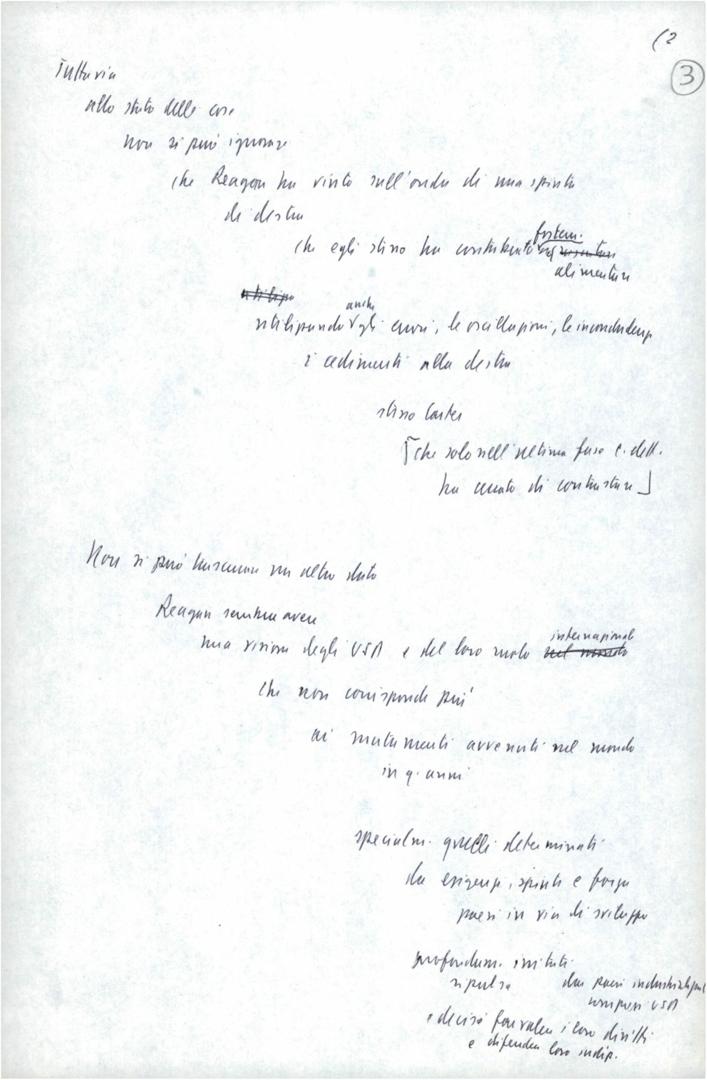 (2
3
Tuttavia
allo stato delle cose
non si può ignorare
che Reagan ha vinto sull'onda di una spinta
di destra
fortem.
che egli stesso ha contribuito ad
alimentare
anche
utilizzando gli errori, le oscillazioni, le inconcludenze
i cedimenti alla destra
stesso Carter
[che solo nell'ultima fase c. elett.
ha cercato di contrastare]
Non si può trascurare un altro dato
Reagan sembra avere
internazionale
una visione degli USA e del loro ruolo nel mondo
che non corrisponde più
ai mutamenti avvenuti nel mondo
in q. anni
specialm. quelli determinati
da esigenze, spinte e forze
paesi in via di sviluppo
profondam.
ripulsa dai paesi industrializzati
compresi USA
e decisi far valere i loro diritti
e difendere loro indip.